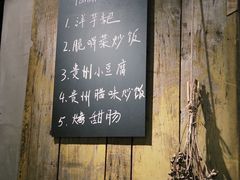 1. 洋芋粑
2. 脆哨菜炒饭
3. 贵州小豆腐
4. 贵州腊味炒饭
5. 烤甜肠